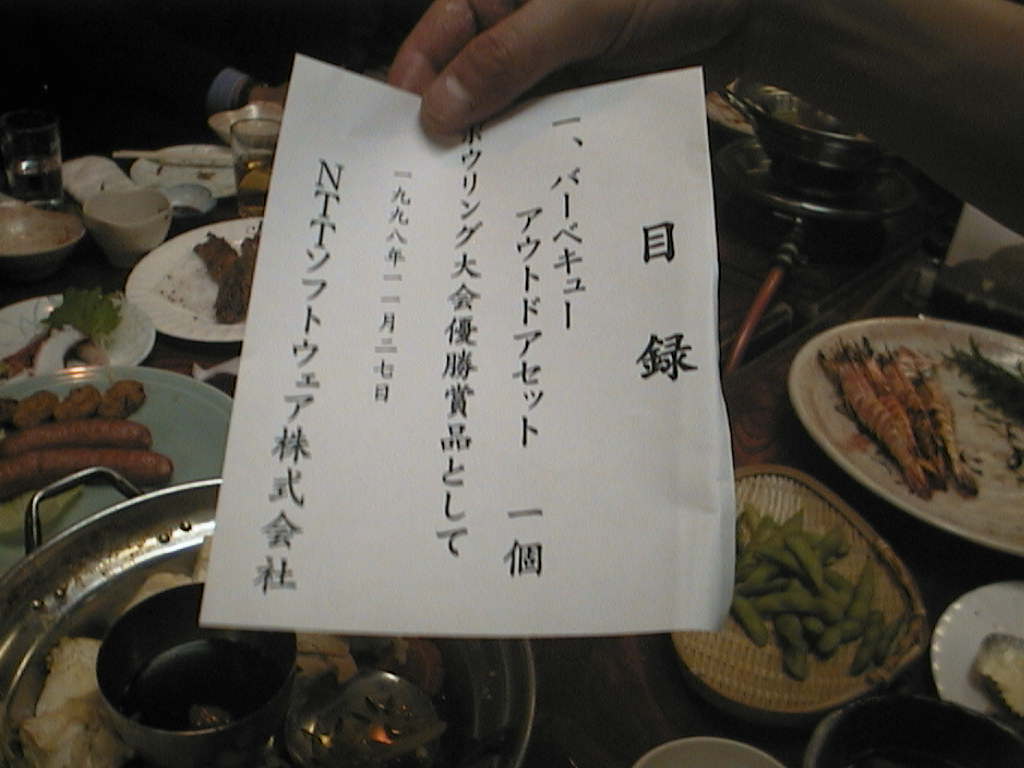 目録
一、バーベキュー
アウトドアセット 一個
ボウリング大会優勝賞品として
一九九八年一一月二七日
NTTソフトウェア株式会社